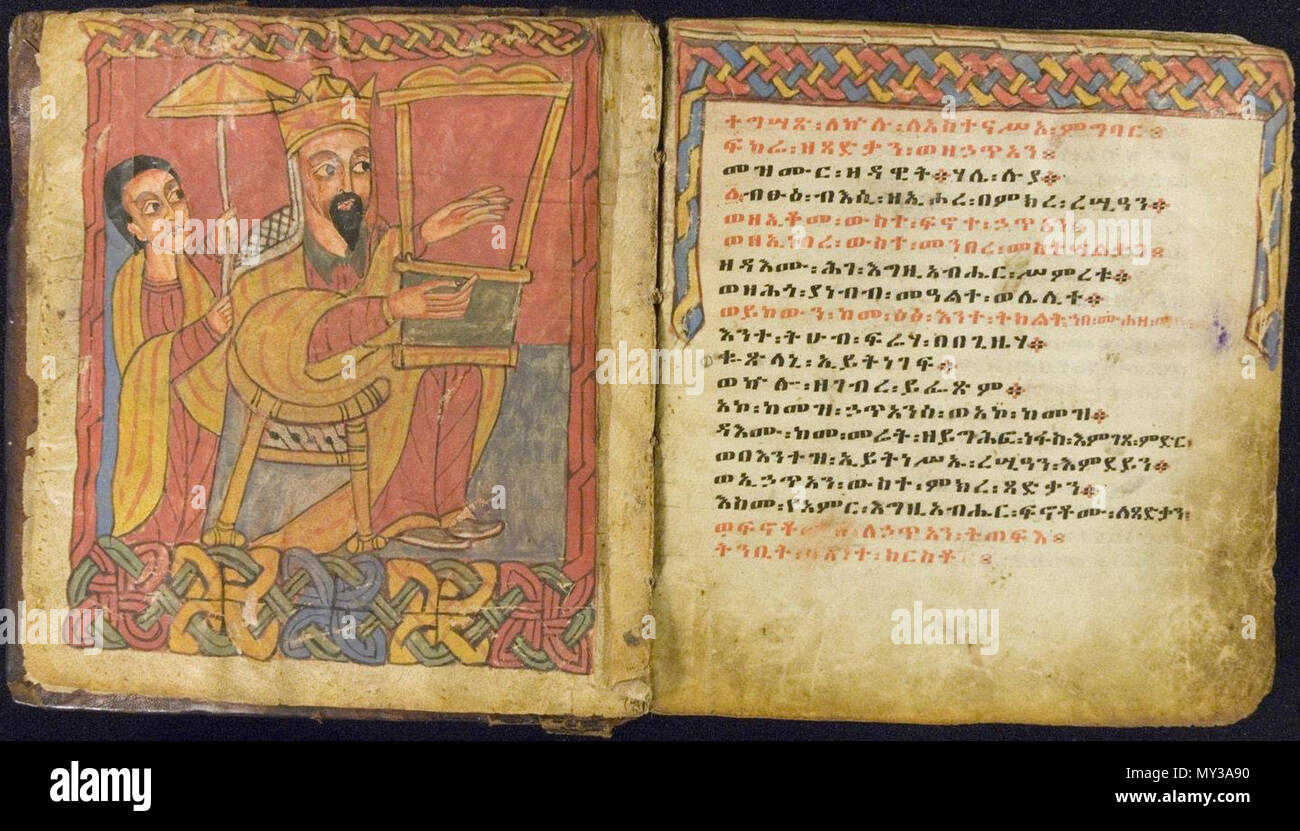 ተግሣጽ፡ለኵሉ፡ለአስተናሥኦ፡ምግባር፨
ፍካሬ፡ዘጻድቃን፡ወዘኃጥኣን፨
መዝሙር፡ዘዳዊት፨ሃሌ፡ሉያ፨
ብፁዕ፡ብእሲ፡ዘኢሖረ፡በምክረ፡ረሢዓን፨
ወዘኢቆመ፡ውስተ፡ፍኖተ፡ኃጥኣን፨
ወዘኢነበረ፡ውስተ፡መንበረ፡መስተሣልቃን፨
ዘዳእሙ፡ሕገ፡እግዚአብሔር፡ሥምረቱ፨
ወዘሕጎ፡ያነብብ፡መዓልተ፡ወሌሊተ፨
ወይከውን፡ከመ፡ዕፅ፡እንተ፡ትክልት፡ኀበ፡ሙሐዘ፡
እንተ፡ትሁብ፡ፍሬሃ፡በበጊዜሃ፨
ቈጽላኒ፡ኢይትነገፍ፨
ወኵሎ፡ዘገብረ፡ይፌጽም፨
አኮ፡ከመዝ፡ኃጥአንስ፡ወአኮ፡ከመዝ፨
ዳእሙ፡ከመ፡መሬት፡ዘይግሕፎ፡ነፋስ፡እምገጸ፡ምድር፡
ወበእንተዝ፡ኢይትነሥኡ፡ረሢዓን፡እምደይን፨
ወኢኃጥአን፡ውስተ፡ምክረ፡ጻድቃን፨
እስመ፡የአምር፡እግዚአብሔር፡ፍኖቶሙ፡ለጻድቃን፡
ወፍኖቶሙ፡ለኃጥአን፡ትጠፍእ፨
ትንቢት፡በእንተ፡ክርስቶ፨
alamy
www.alamy.com
Image ID: MY3A90